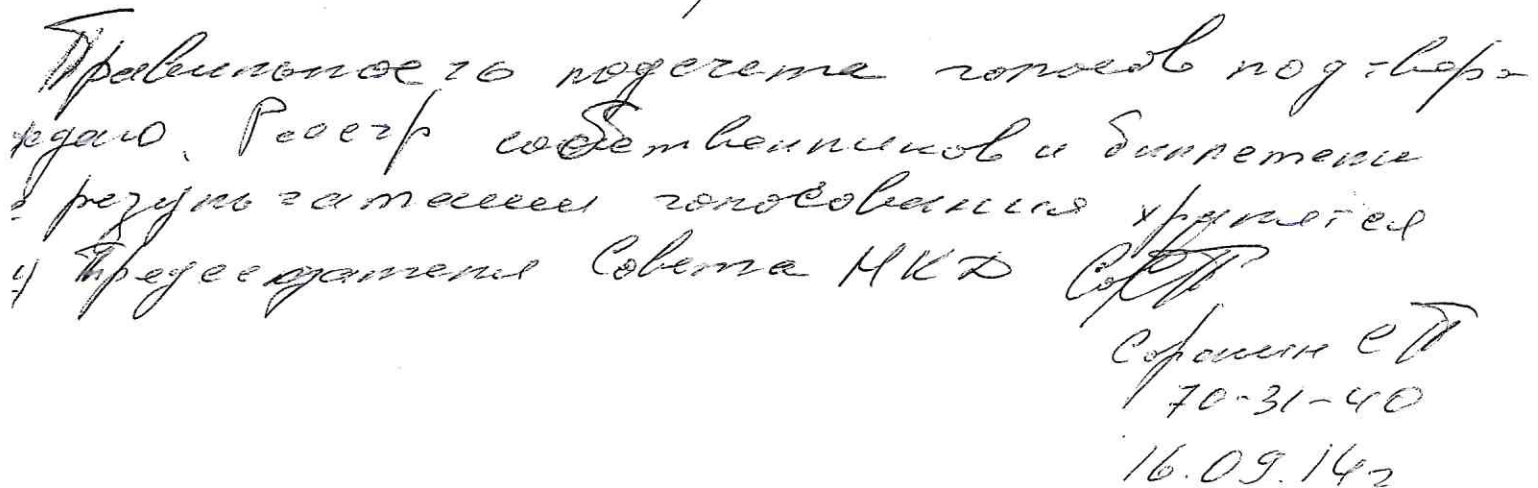 Правильность подсчета голосов подтвер-
ждаю. Реестр собственников и бюллетени
с результатами голосования хранятся
у Председателя Совета МКД
С П
70-31-40
16.09.14г